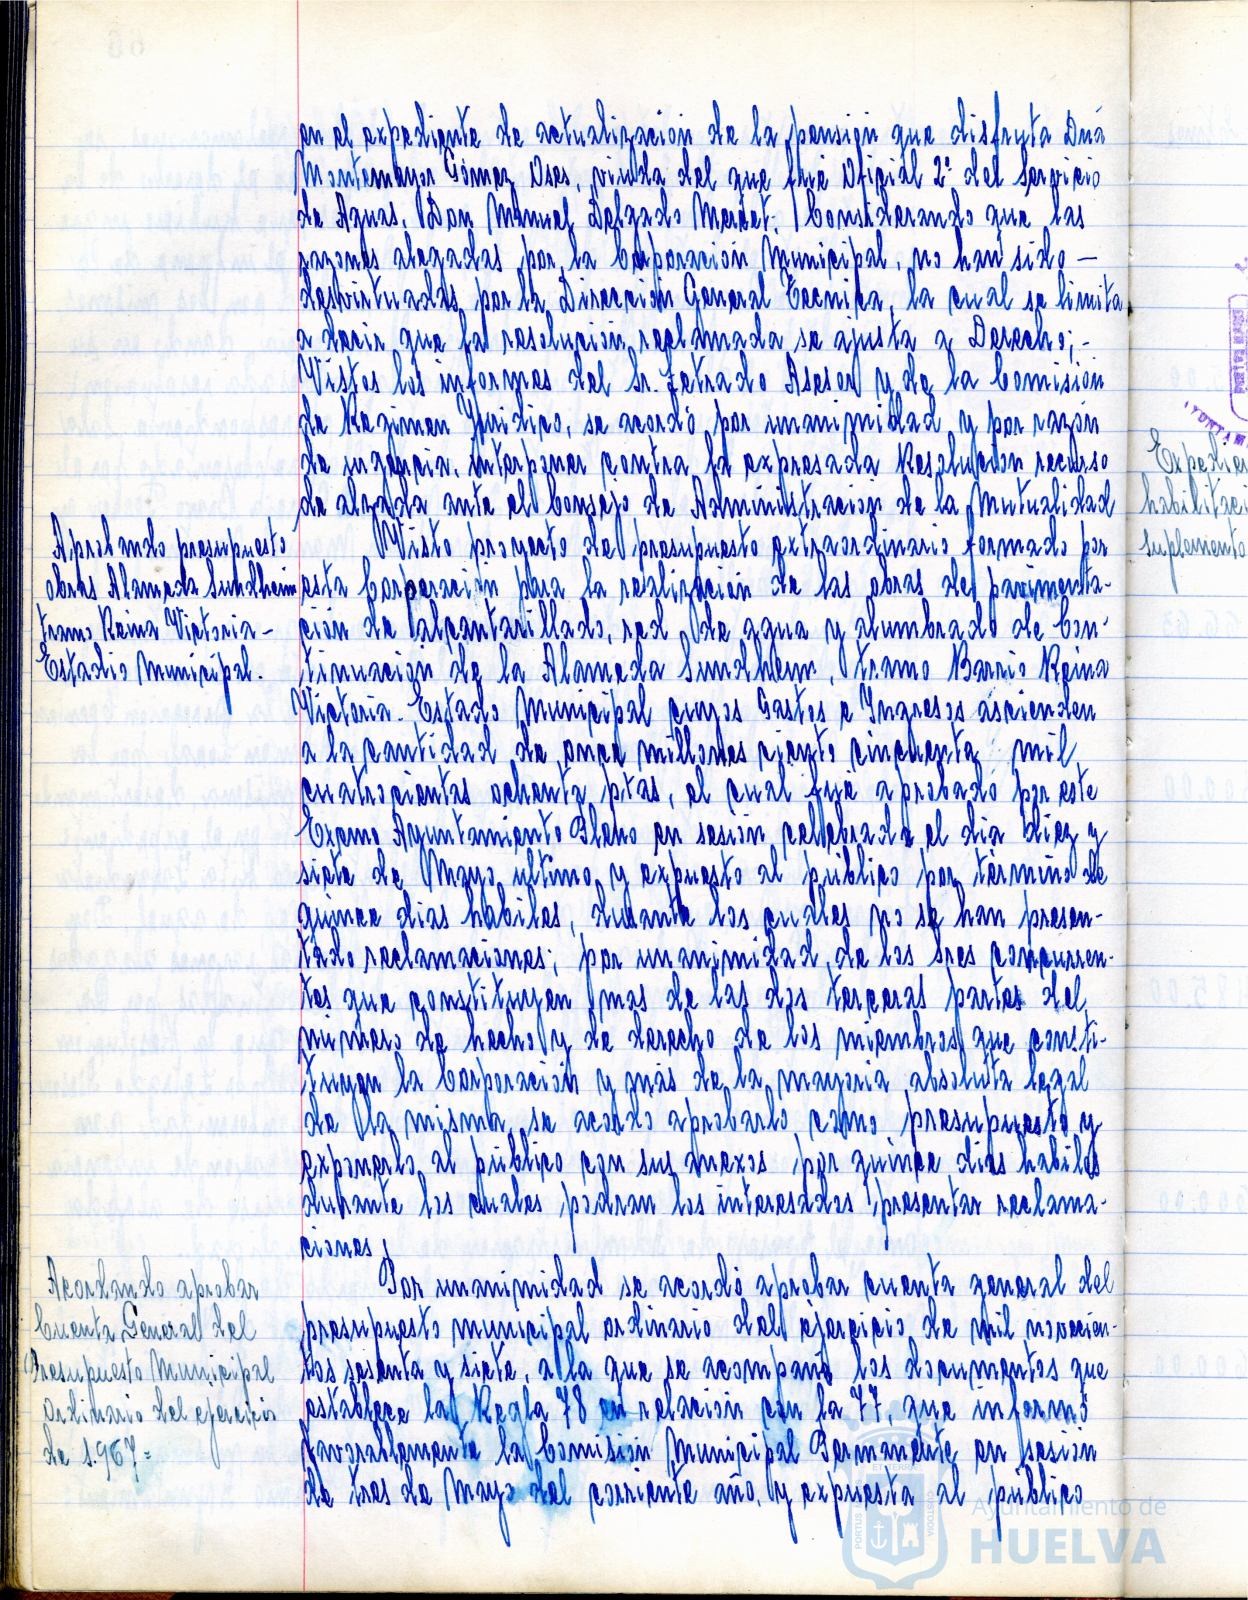 en el expediente de actualización de la pensión que disfruta Dña
Montemayor Gómez Oses, viuda del que fué Oficial 2º del Servicio
de Aguas, Don Manuel Delgado Merdet. Considerando que las
razones alegadas por la Corporación Municipal, no han sido —
desvirtuadas por la Dirección General Tecnica, la cual se limita
a decir que la resolución reclamada se ajusta a Derecho; -
Vistos los informes del Sr. Letrado Asesor y de la Comisión
de Regimen Juridico, se acordó por unanimidad y por razón
de urgencia, interponer contra la expresada Resolución recurso
de alzada ante el Consejo de Administración de la Mutualidad
Aprobando presupuesto
obras Alameda Sundheim
tramo Reina Victoria -
Estadio Municipal.
Visto proyecto de presupuesto extraordinario formado por
esta Corporación para la realización de las obras de pavimenta-
ción de alcantarillado, red de agua y alumbrado de Con-
tinuación de la Alameda Sundheim, tramo Barrio Reina
Victoria. Estadio Municipal cuyos Gastos e Ingresos ascienden
a la cantidad de once millones ciento cincuenta mil
cuatrocientas ochenta ptas, el cual fué aprobado por este
Excmo Ayuntamiento Pleno en sesión celebrada el dia diez y
siete de Mayo ultimo y expuesto al público por término de
quince dias habiles, durante los cuales no se han presen-
tado reclamaciones; por unanimidad de los Sres concurren-
tes que constituyen mas de las dos terceras partes del
número de hecho y de derecho de los miembros que consti-
tuyen la Corporación y más de la mayoria absoluta legal
de la misma, se acordó aprobarlo como presupuesto y
exponerlo al público con sus anexos por quince dias habiles
durante los cuales podran los interesados presentar reclama-
ciones,
Acordando aprobar
Cuenta General del
Presupuesto Municipal
ordinario del ejercicio
de 1.967=
Por unanimidad se acordó aprobar cuenta general del
presupuesto municipal ordinario del ejercicio de mil novecien-
tos sesenta y siete, a la que se acompaña los documentos que
establece la Regla 78 en relación con la 77, que informó
favorablemente la Comisión Municipal Permanente en sesión
de tres de Mayo del corriente año, y expuesta al público
Expedien
habilitaci
suplemento
Ayuntamiento de
HUELVA